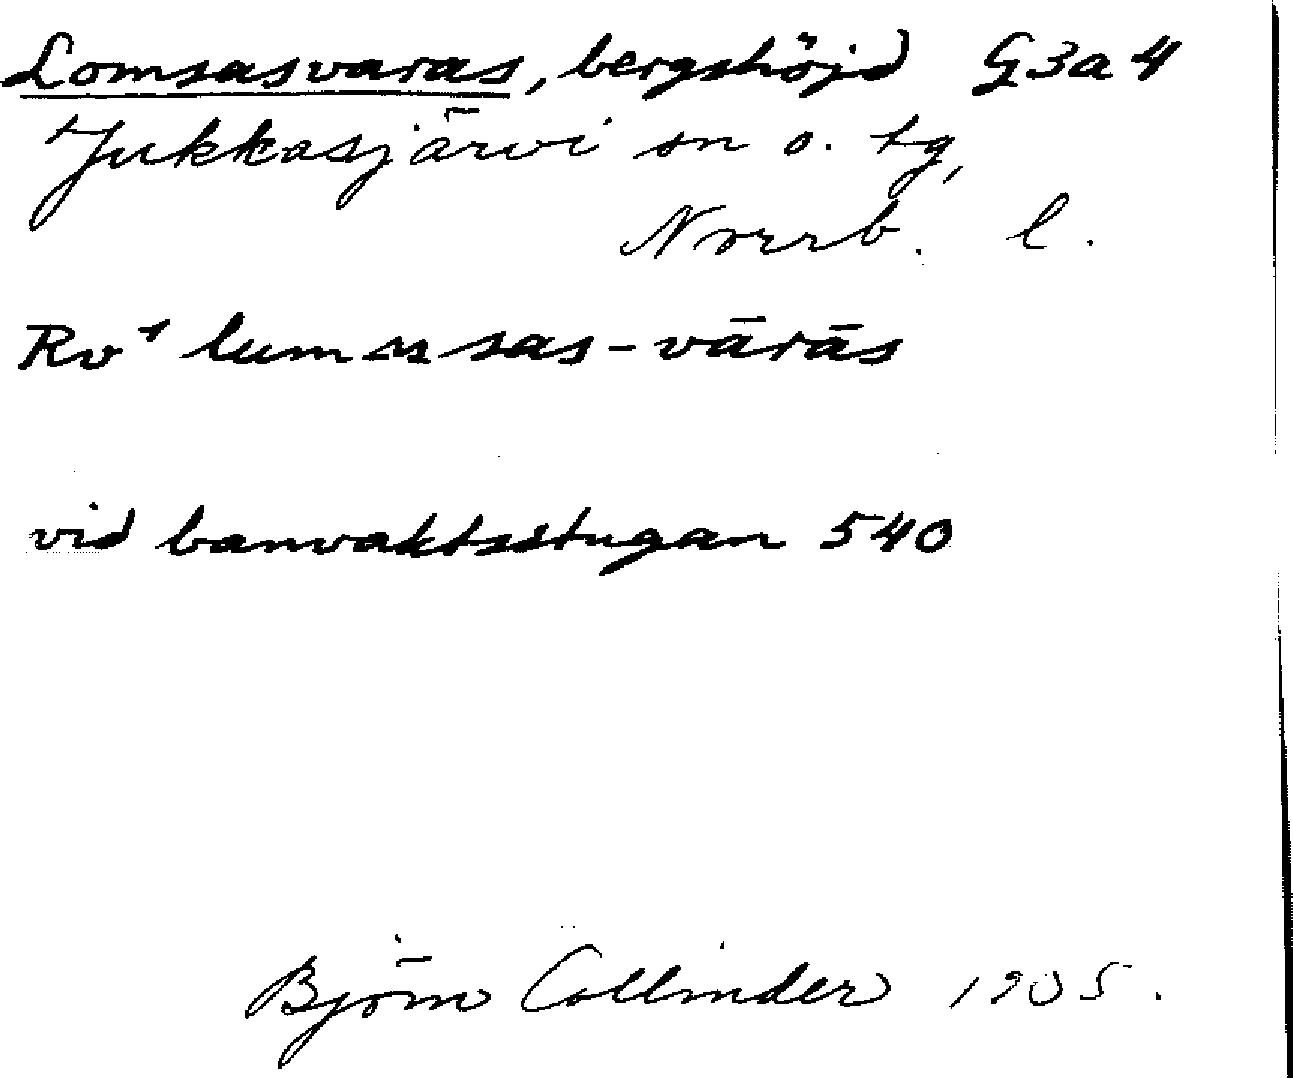 Lomsasvaras, bergshöjd G3a4
Jukkasjärvi sn o. tg,
Norrb. l.
Rv¹ lum sas-vārās
vid banvaktsstugan 540
Björn Collinder 1905.